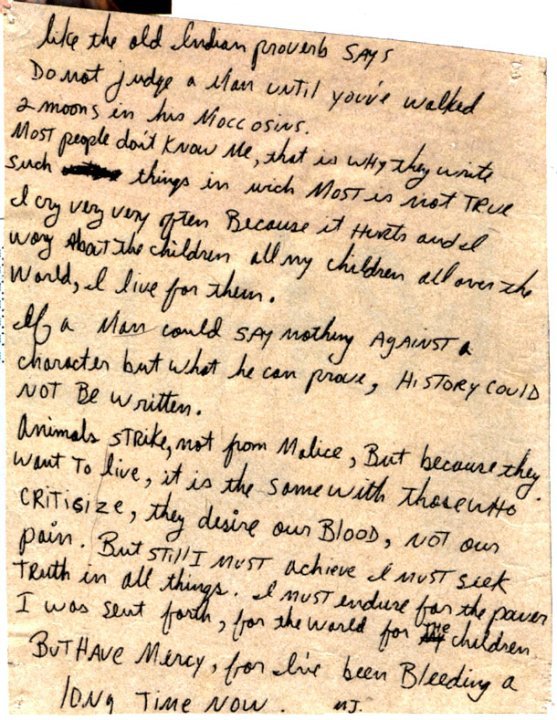 like the old Indian proverb SAYS
Do not judge a Man until you've walked
2 moons in his Moccosins.
Most people don't know me, that is why they write
such things in wich MOST is not TRUE
I cry very very often Because it Hurts and I
wory About the children all my children all over the
world, I live for them.
If a Man could SAY nothing AGAINST a
character but what he can prove, HISTORY COULD
NOT BE written.
Animals STRIKE, not from Malice, But because they
want To live, it is the same with those who
CRITISIZE, they desire our BLOOD, NOT our
pain. But STill I MUST achieve I MUST seek
TRUTH in all things. I must endure for the power
I was sent forth, for the world for THE children.
BUT HAVE Mercy, for I've been Bleeding a
long Time NOW. MJ.